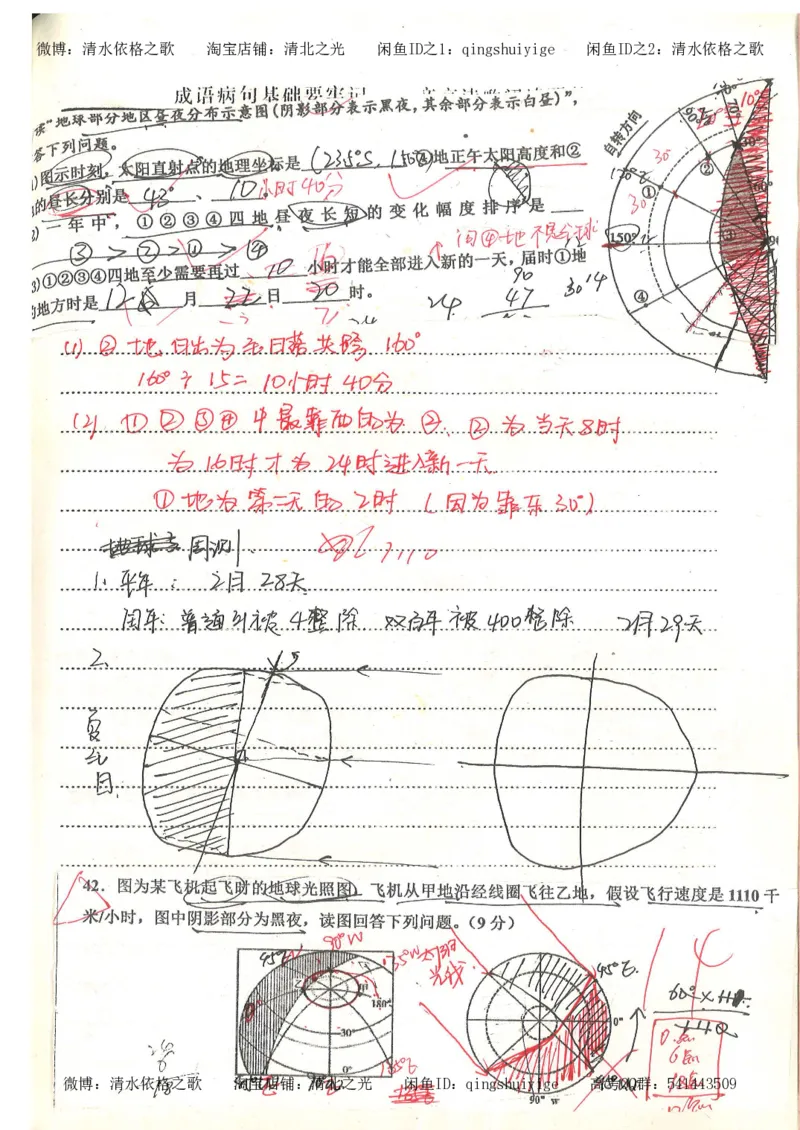 微博：清水依格之歌 淘宝店铺：清北之光 闲鱼ID之1：qingshuiyige 闲鱼ID之2：清水依格之歌
成语病句基础要牢记
读"地球部分地区昼夜分布示意图(阴影部分表示黑夜,其余部分表示白昼)",
答下列问题。
图示时刻,太阳直射点的地理坐标是 地正午太阳高度和②
的昼长分别是 43° 、 10小时40分
一年中,①②③④四地昼夜长短的变化幅度排序是
③>②>①>④
①②③④四地至少需要再过 小时才能全部进入新的一天,届时①地
的地方时是 12 月 22 日 时。
自转方向
①
②
④
150°
(1) ②地日出为 至日落共跨 160°
160°÷15=10小时40分
(2) ①②③④中最靠西的为②、②为当天8时
为16时才为24时进入新一天
①地为第二天的2时 (因为靠东30°)
周测
1. 平年: 2月28天
闰年:普通 被4整除 双百年 被400整除 2月29天
2.
42. 图为某飞机起飞时的地球光照图,飞机从甲地沿经线圈飞往乙地,假设飞行速度是1110千
米/小时,图中阴影部分为黑夜,读图回答下列问题。(9分)
90°W
太阳光线
45°E
180°
30°
0°
0°
90° W
微博：清水依格之歌 淘宝店铺：清北之光 闲鱼ID：qingshuiyige 高考QQ群：541443509